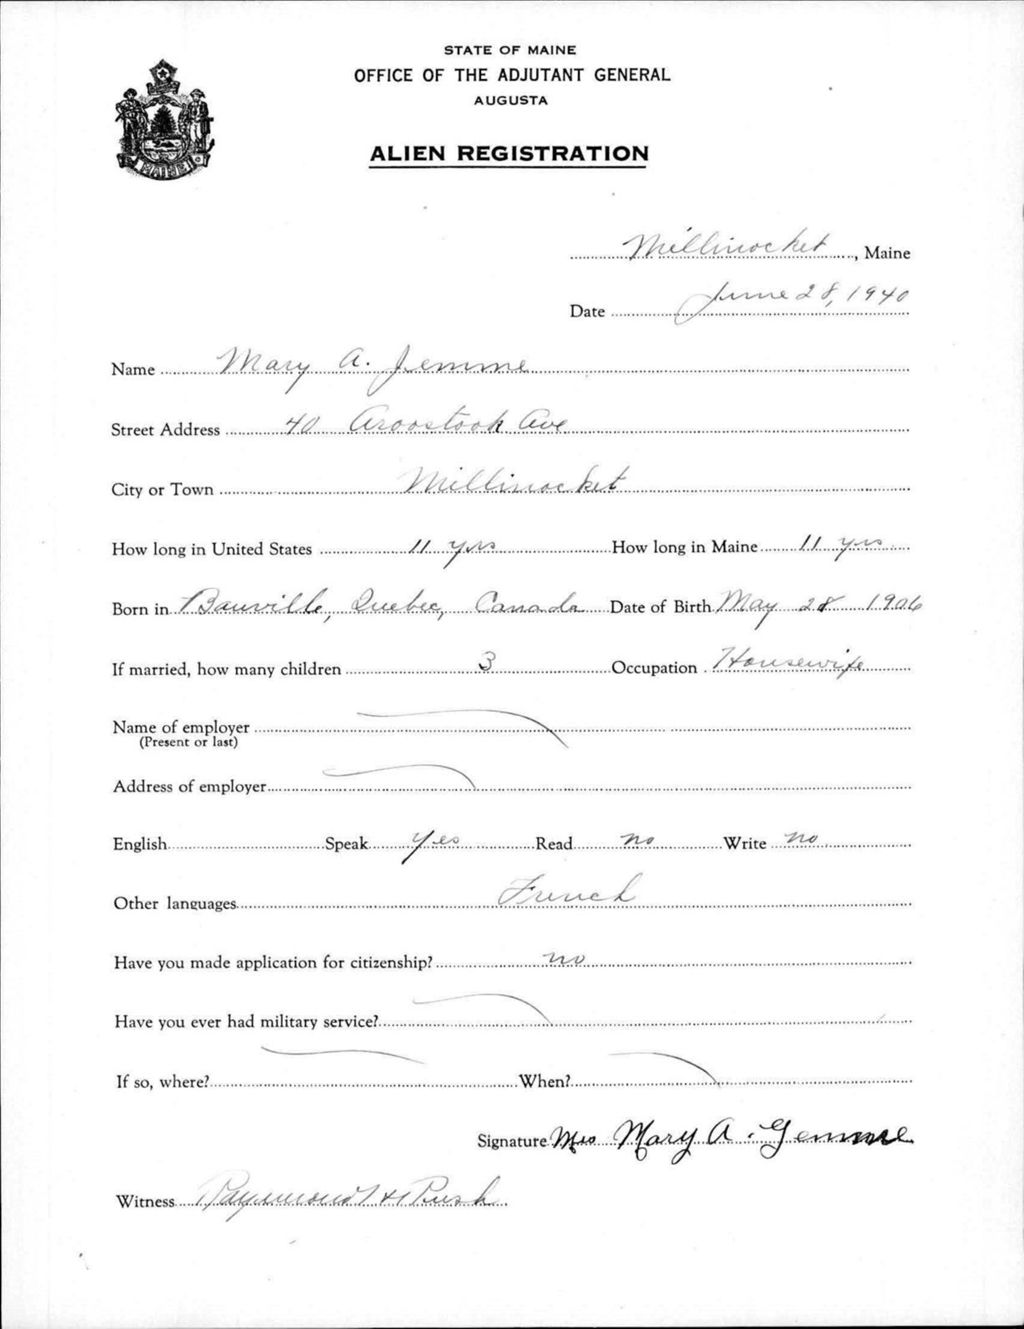 STATE OF MAINE
OFFICE OF THE ADJUTANT GENERAL
AUGUSTA
ALIEN REGISTRATION
MAINE
Millinocket, Maine
Date June 28, 1940
Name Mary A. Jemme
Street Address 40 Aroostook Ave
City or Town Millinocket
How long in United States 11 yrs How long in Maine 11 yrs
Born in Bauville, Quebec, Canada Date of Birth May 28 1906
If married, how many children 3 Occupation Housewife
Name of employer
(Present or last)
Address of employer
English Speak Yes Read no Write no
Other languages French
Have you made application for citizenship? no
Have you ever had military service?
If so, where? When?
Signature Mrs Mary A. Gemme
Witness Raymond H Rush